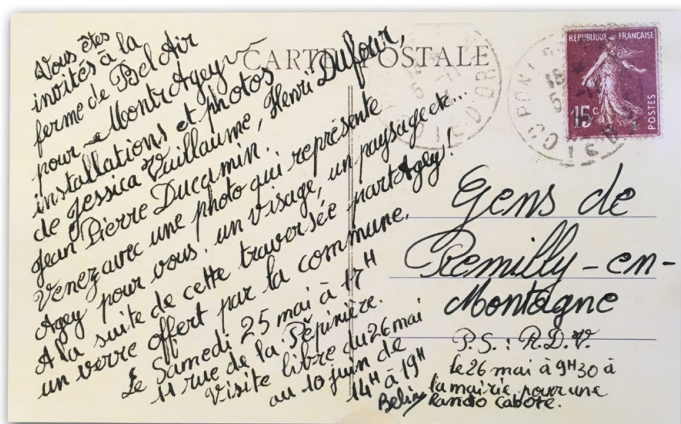 CARTE POSTALE
Vous êtes
invités à la
ferme de Bel Air
pour MontrAgey
installations et photos
de Jessica Vuillaume, Henri Dufour,
Jean Pierre Ducamin.
Venez avec une photo qui représente
Agey pour vous : un visage, un paysage etc...
A la suite de cette traversée partAgey !
un verre offert par la commune.
Le Samedi 25 mai à 17H
11 rue de la Pépinière.
Visite libre du 26 mai
au 10 juin de
14H à 19H
REPUBLIQUE FRANÇAISE
15c
POSTES
Gens de
Remilly-en-
Montagne
P.S. : R.D.V.
le 26 mai à 9H30 à
la mairie pour une
Rando Cabote.